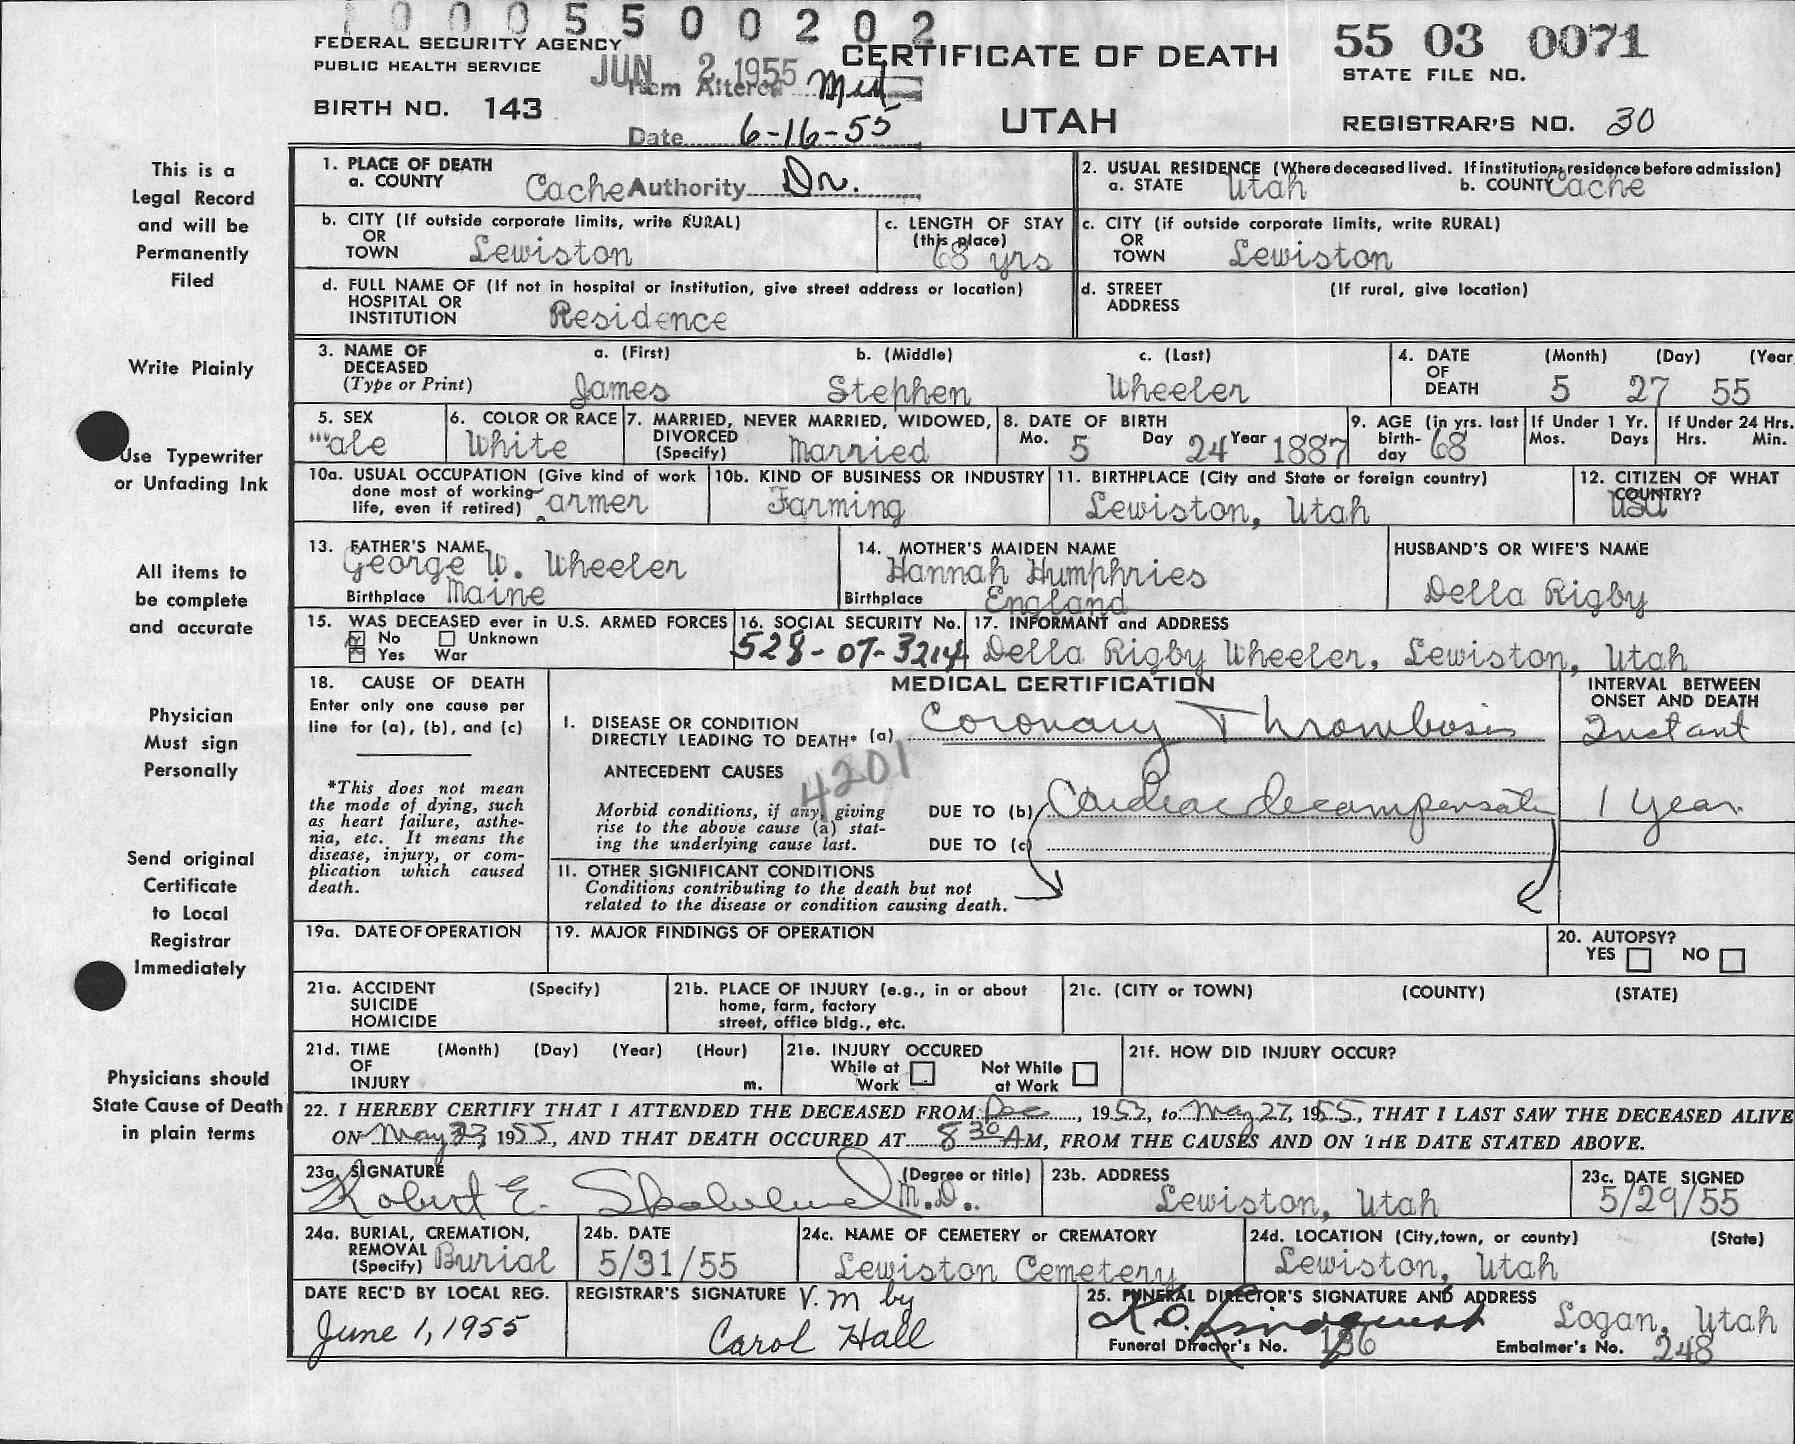 1000550 0202
FEDERAL SECURITY AGENCY
PUBLIC HEALTH SERVICE
JUN 2 1955
Item Altered Med
Date 6-16-55
Authority Dr.
BIRTH NO. 143
CERTIFICATE OF DEATH
UTAH
55 03 0071
STATE FILE NO.
REGISTRAR'S NO. 30
This is a
Legal Record
and will be
Permanently
Filed
Write Plainly
Use Typewriter
or Unfading Ink
All items to
be complete
and accurate
Physician
Must sign
Personally
Send original
Certificate
to Local
Registrar
Immediately
Physicians should
State Cause of Death
in plain terms
1. PLACE OF DEATH
a. COUNTY Cache
2. USUAL RESIDENCE (Where deceased lived. If institution, residence before admission)
a. STATE Utah b. COUNTY Cache
b. CITY (If outside corporate limits, write RURAL)
OR
TOWN Lewiston
c. LENGTH OF STAY
(this place)
68 yrs
c. CITY (if outside corporate limits, write RURAL)
OR
TOWN Lewiston
d. FULL NAME OF (If not in hospital or institution, give street address or location)
HOSPITAL OR
INSTITUTION Residence
d. STREET (If rural, give location)
ADDRESS
3. NAME OF
DECEASED
(Type or Print)
a. (First) b. (Middle) c. (Last)
James Stephen Wheeler
4. DATE
OF
DEATH
(Month) (Day) (Year
5 27 55
5. SEX
Male
6. COLOR OR RACE
White
7. MARRIED, NEVER MARRIED, WIDOWED,
DIVORCED
(Specify) Married
8. DATE OF BIRTH
Mo. 5 Day 24 Year 1887
9. AGE (in yrs. last
birth-
day 68
If Under 1 Yr.
Mos. Days
If Under 24 Hrs.
Hrs. Min.
10a. USUAL OCCUPATION (Give kind of work
done most of working
life, even if retired) Farmer
10b. KIND OF BUSINESS OR INDUSTRY
Farming
11. BIRTHPLACE (City and State or foreign country)
Lewiston, Utah
12. CITIZEN OF WHAT
COUNTRY?
USA
13. FATHER'S NAME
George W. Wheeler
Birthplace Maine
14. MOTHER'S MAIDEN NAME
Hannah Humphries
Birthplace England
HUSBAND'S OR WIFE'S NAME
Della Rigby
15. WAS DECEASED ever in U.S. ARMED FORCES
No Unknown
Yes War
16. SOCIAL SECURITY No.
528-07-3214
17. INFORMANT and ADDRESS
Della Rigby Wheeler, Lewiston, Utah
18. CAUSE OF DEATH
Enter only one cause per
line for (a), (b), and (c)
*This does not mean
the mode of dying, such
as heart failure, asthe-
nia, etc. It means the
disease, injury, or com-
plication which caused
death.
MEDICAL CERTIFICATION
INTERVAL BETWEEN
ONSET AND DEATH
I. DISEASE OR CONDITION
DIRECTLY LEADING TO DEATH* (a) Coronary Thrombosis Instant
4201
ANTECEDENT CAUSES
Morbid conditions, if any, giving
rise to the above cause (a) stat-
ing the underlying cause last.
DUE TO (b) Cardiac decompensate 1 year
DUE TO (c)
11. OTHER SIGNIFICANT CONDITIONS
Conditions contributing to the death but not
related to the disease or condition causing death.
19a. DATE OF OPERATION
19. MAJOR FINDINGS OF OPERATION
20. AUTOPSY?
YES NO
21a. ACCIDENT (Specify)
SUICIDE
HOMICIDE
21b. PLACE OF INJURY (e.g., in or about
home, farm, factory
street, office bldg., etc.
21c. (CITY or TOWN) (COUNTY) (STATE)
21d. TIME (Month) (Day) (Year) (Hour)
OF
INJURY m.
21e. INJURY OCCURED
While at
Work
Not While
at Work
21f. HOW DID INJURY OCCUR?
22. I HEREBY CERTIFY THAT I ATTENDED THE DECEASED FROM Dec, 1953, to May 27, 1955, THAT I LAST SAW THE DECEASED ALIVE
ON May 23, 1955, AND THAT DEATH OCCURED AT 8 30 AM, FROM THE CAUSES AND ON THE DATE STATED ABOVE.
23a. SIGNATURE (Degree or title)
Robert E. M.D.
23b. ADDRESS
Lewiston, Utah
23c. DATE SIGNED
5/29/55
24a. BURIAL, CREMATION,
REMOVAL
(Specify) Burial
24b. DATE
5/31/55
24c. NAME OF CEMETERY or CREMATORY
Lewiston Cemetery
24d. LOCATION (City, town, or county) (State)
Lewiston, Utah
DATE REC'D BY LOCAL REG.
June 1, 1955
REGISTRAR'S SIGNATURE V. M by
Carol Hall
25. FUNERAL DIRECTOR'S SIGNATURE AND ADDRESS
Logan, Utah
Funeral Director's No. 186 Embalmer's No. 248